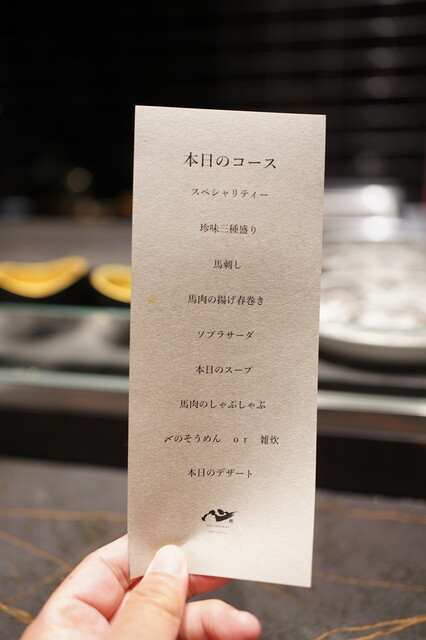 本日のコース
スペシャリティー
珍味三種盛り
馬刺し
馬肉の揚げ春巻き
ソプラサーダ
本日のスープ
馬肉のしゃぶしゃぶ
〆のそうめん or 雑炊
本日のデザート